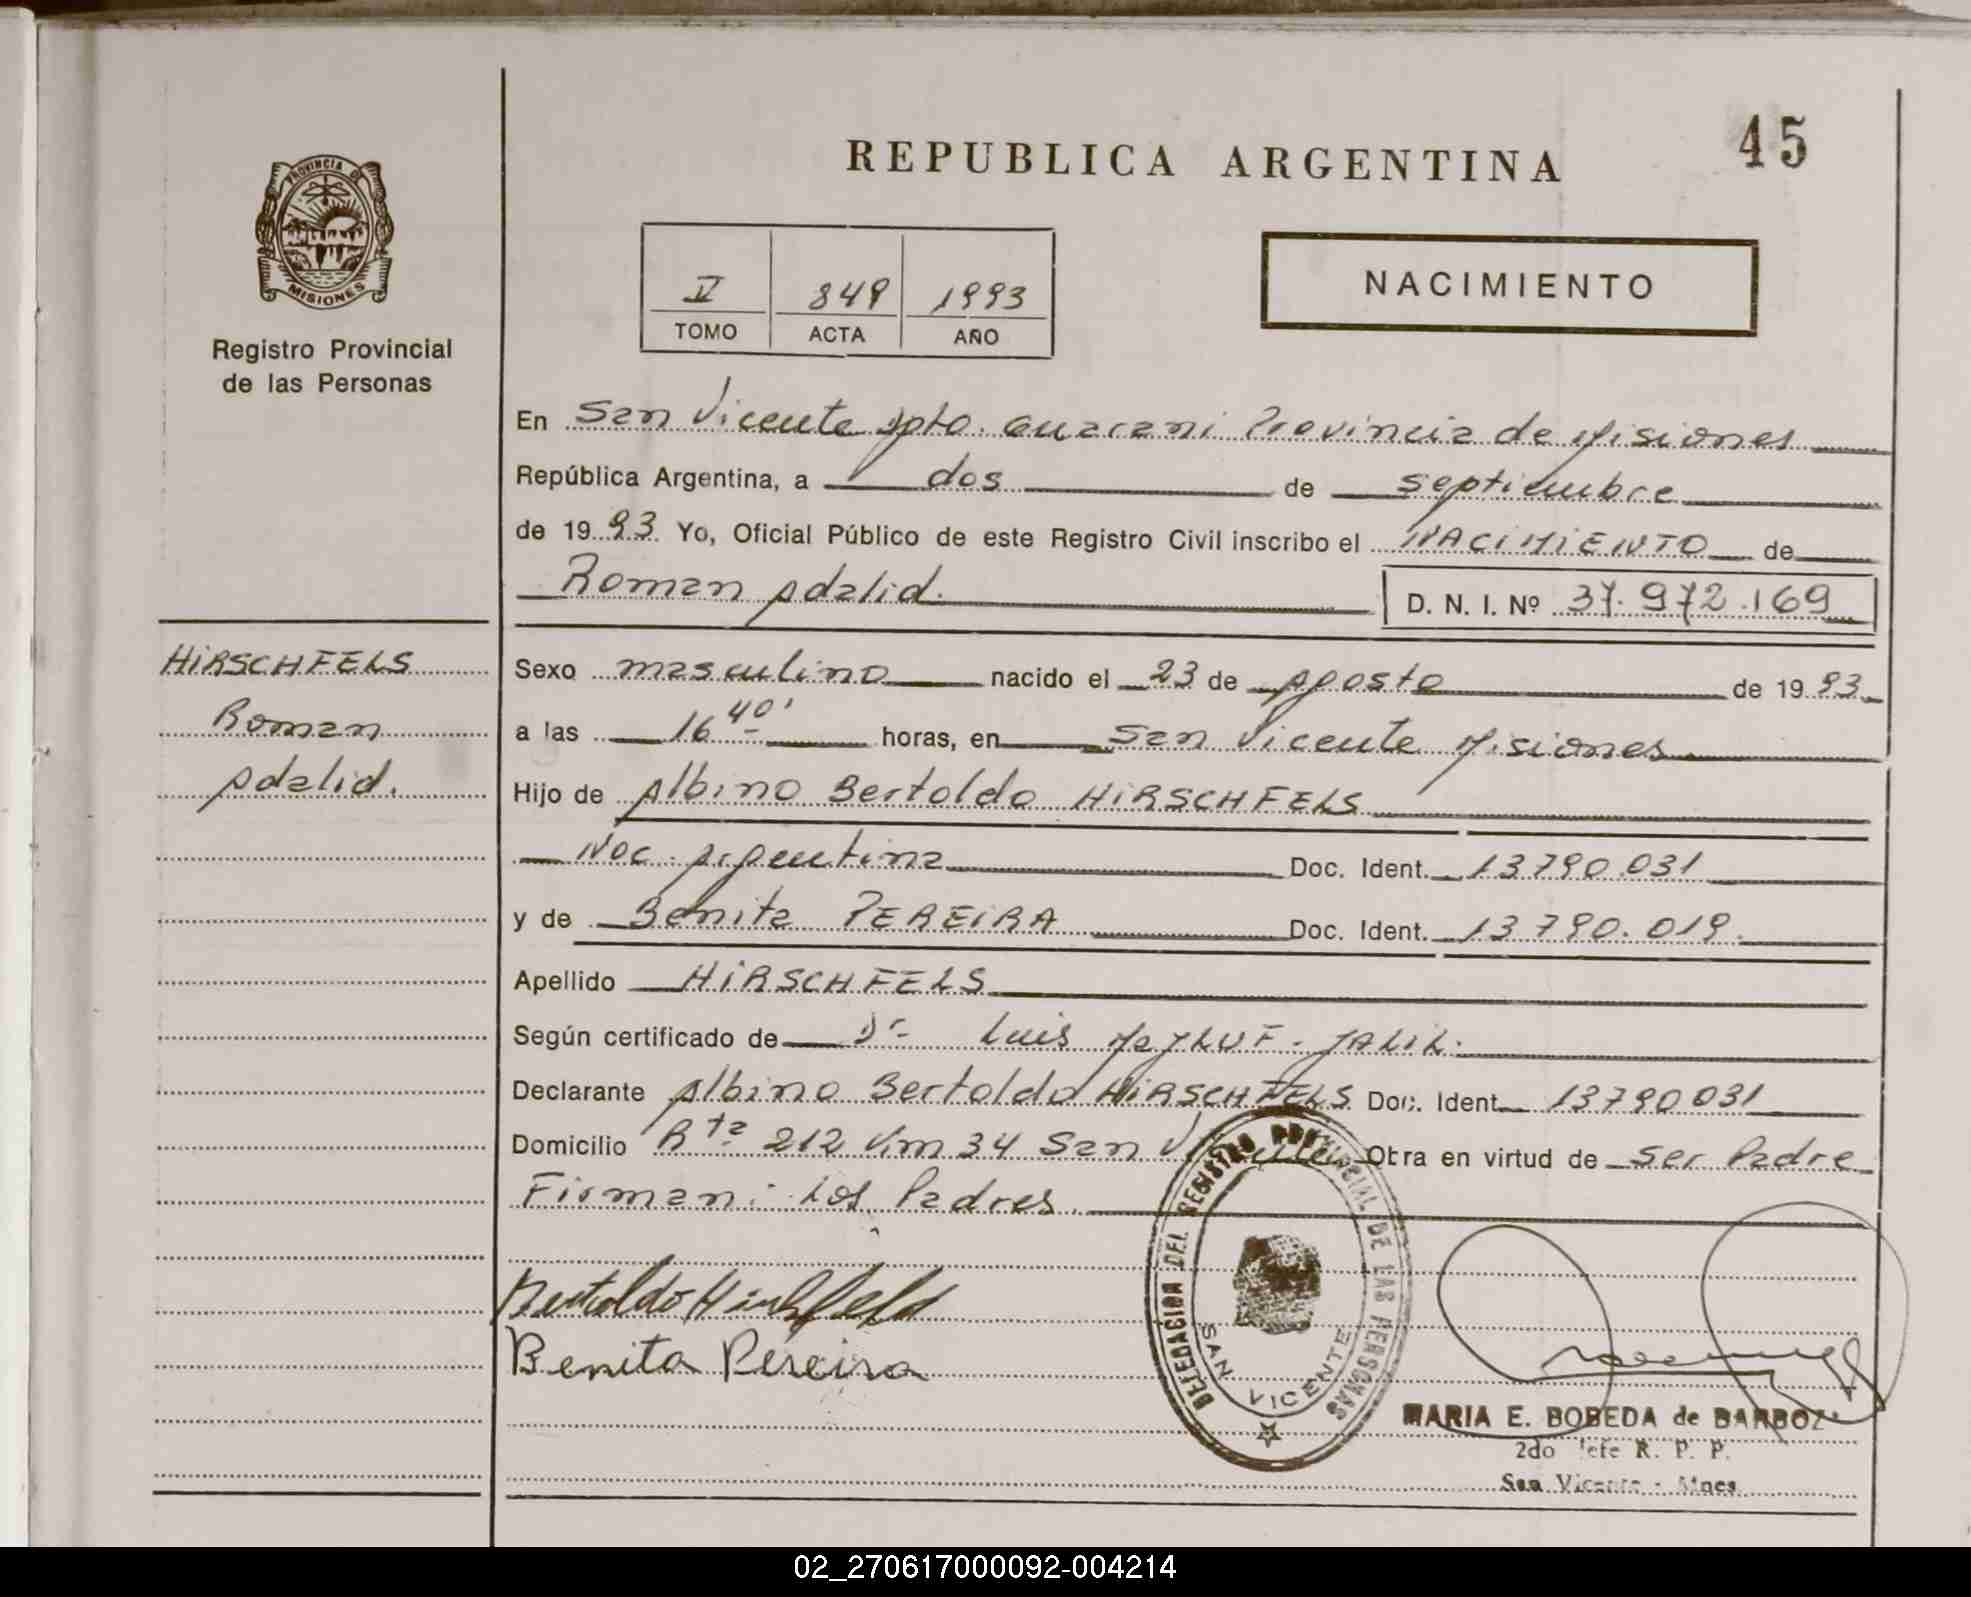 45
REPUBLICA ARGENTINA
PROVINCIA DE
MISIONES
Registro Provincial
de las Personas
849 1993
TOMO ACTA AÑO
NACIMIENTO
En San Vicente Dpto. Guarani Provincia de Misiones
República Argentina, a dos de septiembre
de 19 93 Yo, Oficial Público de este Registro Civil inscribo el NACIMIENTO de
Roman Adalid. D. N. I. Nº 37.972.169
HIRSCHFELS
Roman
Adalid.
Sexo masculino nacido el 23 de Agosto de 19 93
a las 16 40' horas, en San Vicente Misiones
Hijo de Albino Bertoldo HIRSCHFELS
Nac. Argentina Doc. Ident. 13790.031
y de Benita PEREIRA Doc. Ident. 13790.019.
Apellido HIRSCHFELS
Según certificado de Dr. Luis JALIL.
Declarante Albino Bertoldo HIRSCHFELS Doc. Ident. 13790031
Domicilio Rta 212 Km 34 San Vicente Otra en virtud de Ser Padre
Firman: Los Padres
Bertoldo
Benita Pereira
DELEGACION DEL REGISTRO PROVINCIAL DE LAS PERSONAS
SAN VICENTE
MARIA E. BOBEDA de BARBOZA
2do Jefe R. P. P.
San Vicente - Mnes.
02_270617000092-004214